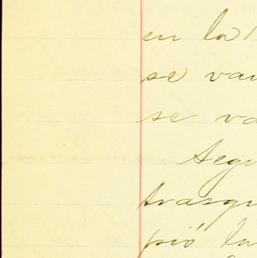 en la
se va
se va
Segu
trasqu
pió la